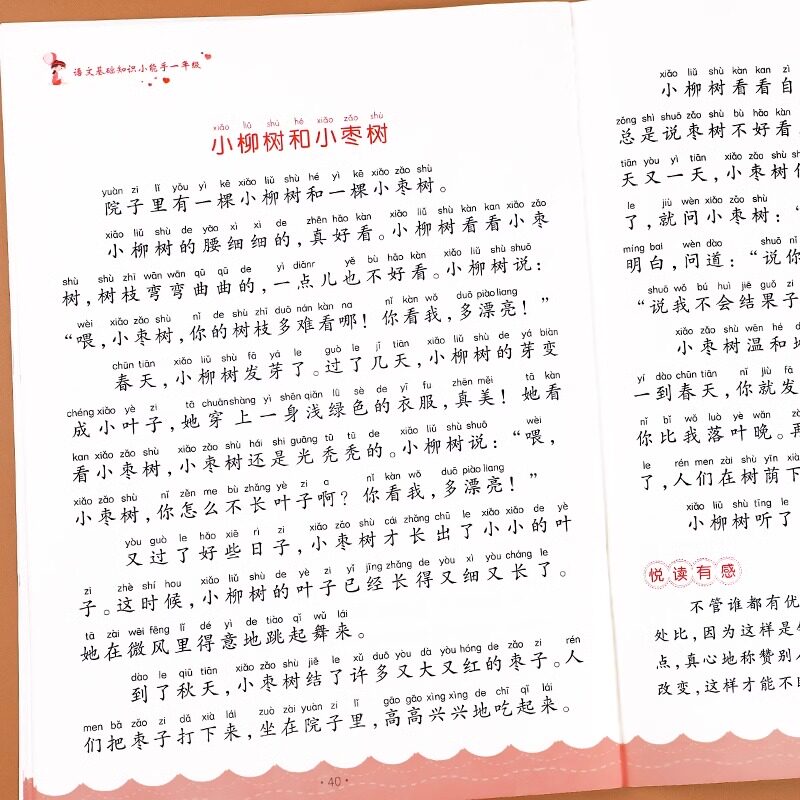 语文基础知识小能手一年级
xiǎo liǔ shù hé xiǎo zǎo shù
小柳树和小枣树
yuàn zi lǐ yǒu yì kē xiǎo liǔ shù hé yì kē xiǎo zǎo shù
院子里有一棵小柳树和一棵小枣树。
xiǎo liǔ shù de yāo xì xì de zhēn hǎo kàn xiǎo liǔ shù kàn kan xiǎo zǎo
小柳树的腰细细的，真好看。小柳树看看小枣
shù shù zhī wān wān qū qū de yì diǎnr yě bù hǎo kàn xiǎo liǔ shù shuō
树，树枝弯弯曲曲的，一点儿也不好看。小柳树说：
wèi xiǎo zǎo shù nǐ de shù zhī duō nán kàn na nǐ kàn wǒ duō piào liang
“喂，小枣树，你的树枝多难看哪！你看我，多漂亮！”
chūn tiān xiǎo liǔ shù fā yá le guò le jǐ tiān xiǎo liǔ shù de yá biàn
春天，小柳树发芽了。过了几天，小柳树的芽变
chéng xiǎo yè zi tā chuānshàng yì shēn qiǎn lǜ sè de yī fu zhēn měi tā kàn
成小叶子，她穿上一身浅绿色的衣服，真美！她看
kan xiǎo zǎo shù xiǎo zǎo shù hái shi guāng tū tū de xiǎo liǔ shù shuō wèi
看小枣树，小枣树还是光秃秃的。小柳树说：“喂，
xiǎo zǎo shù nǐ zěn me bù zhǎng yè zi a nǐ kàn wǒ duō piào liang
小枣树，你怎么不长叶子啊？你看我，多漂亮！”
yòu guò le hǎo xiē rì zi xiǎo zǎo shù cái zhǎng chū le xiǎo xiǎo de yè
又过了好些日子，小枣树才长出了小小的叶
zi zhè shí hou xiǎo liǔ shù de yè zi yǐ jīng zhǎng de yòu xì yòu cháng le
子。这时候，小柳树的叶子已经长得又细又长了。
tā zài wēi fēng lǐ dé yì de tiào qǐ wǔ lái
她在微风里得意地跳起舞来。
dào le qiū tiān xiǎo zǎo shù jiē le xǔ duō yòu dà yòu hóng de zǎo zi rén
到了秋天，小枣树结了许多又大又红的枣子。人
men bǎ zǎo zi dǎ xià lái zuò zài yuàn zi lǐ gāo gāo xìng xìng de chī qǐ lái
们把枣子打下来，坐在院子里，高高兴兴地吃起来。
·40·
xiǎo liǔ shù kàn kan zì
小柳树看看自
zǒng shì shuō zǎo shù bù hǎo kàn
总是说枣树不好看
tiān yòu yì tiān xiǎo zǎo shù
天又一天，小枣树
le jiù wèn xiǎo zǎo shù
了，就问小枣树：“
míng bai wèn dào shuō nǐ
明白，问道：“说你
shuō wǒ bú huì jiē guǒ zi
“说我不会结果子
xiǎo zǎo shù wēn hé de
小枣树温和地
yí dào chūn tiān nǐ jiù fā
一到春天，你就发
nǐ bǐ wǒ luò yè wǎn zài
你比我落叶晚。再
le rén men zài shù yīn xià
了，人们在树荫下
xiǎo liǔ shù tīng le
小柳树听了
悦读有感
不管谁都有优
处比，因为这样是
点，真心地称赞别人
改变，这样才能不